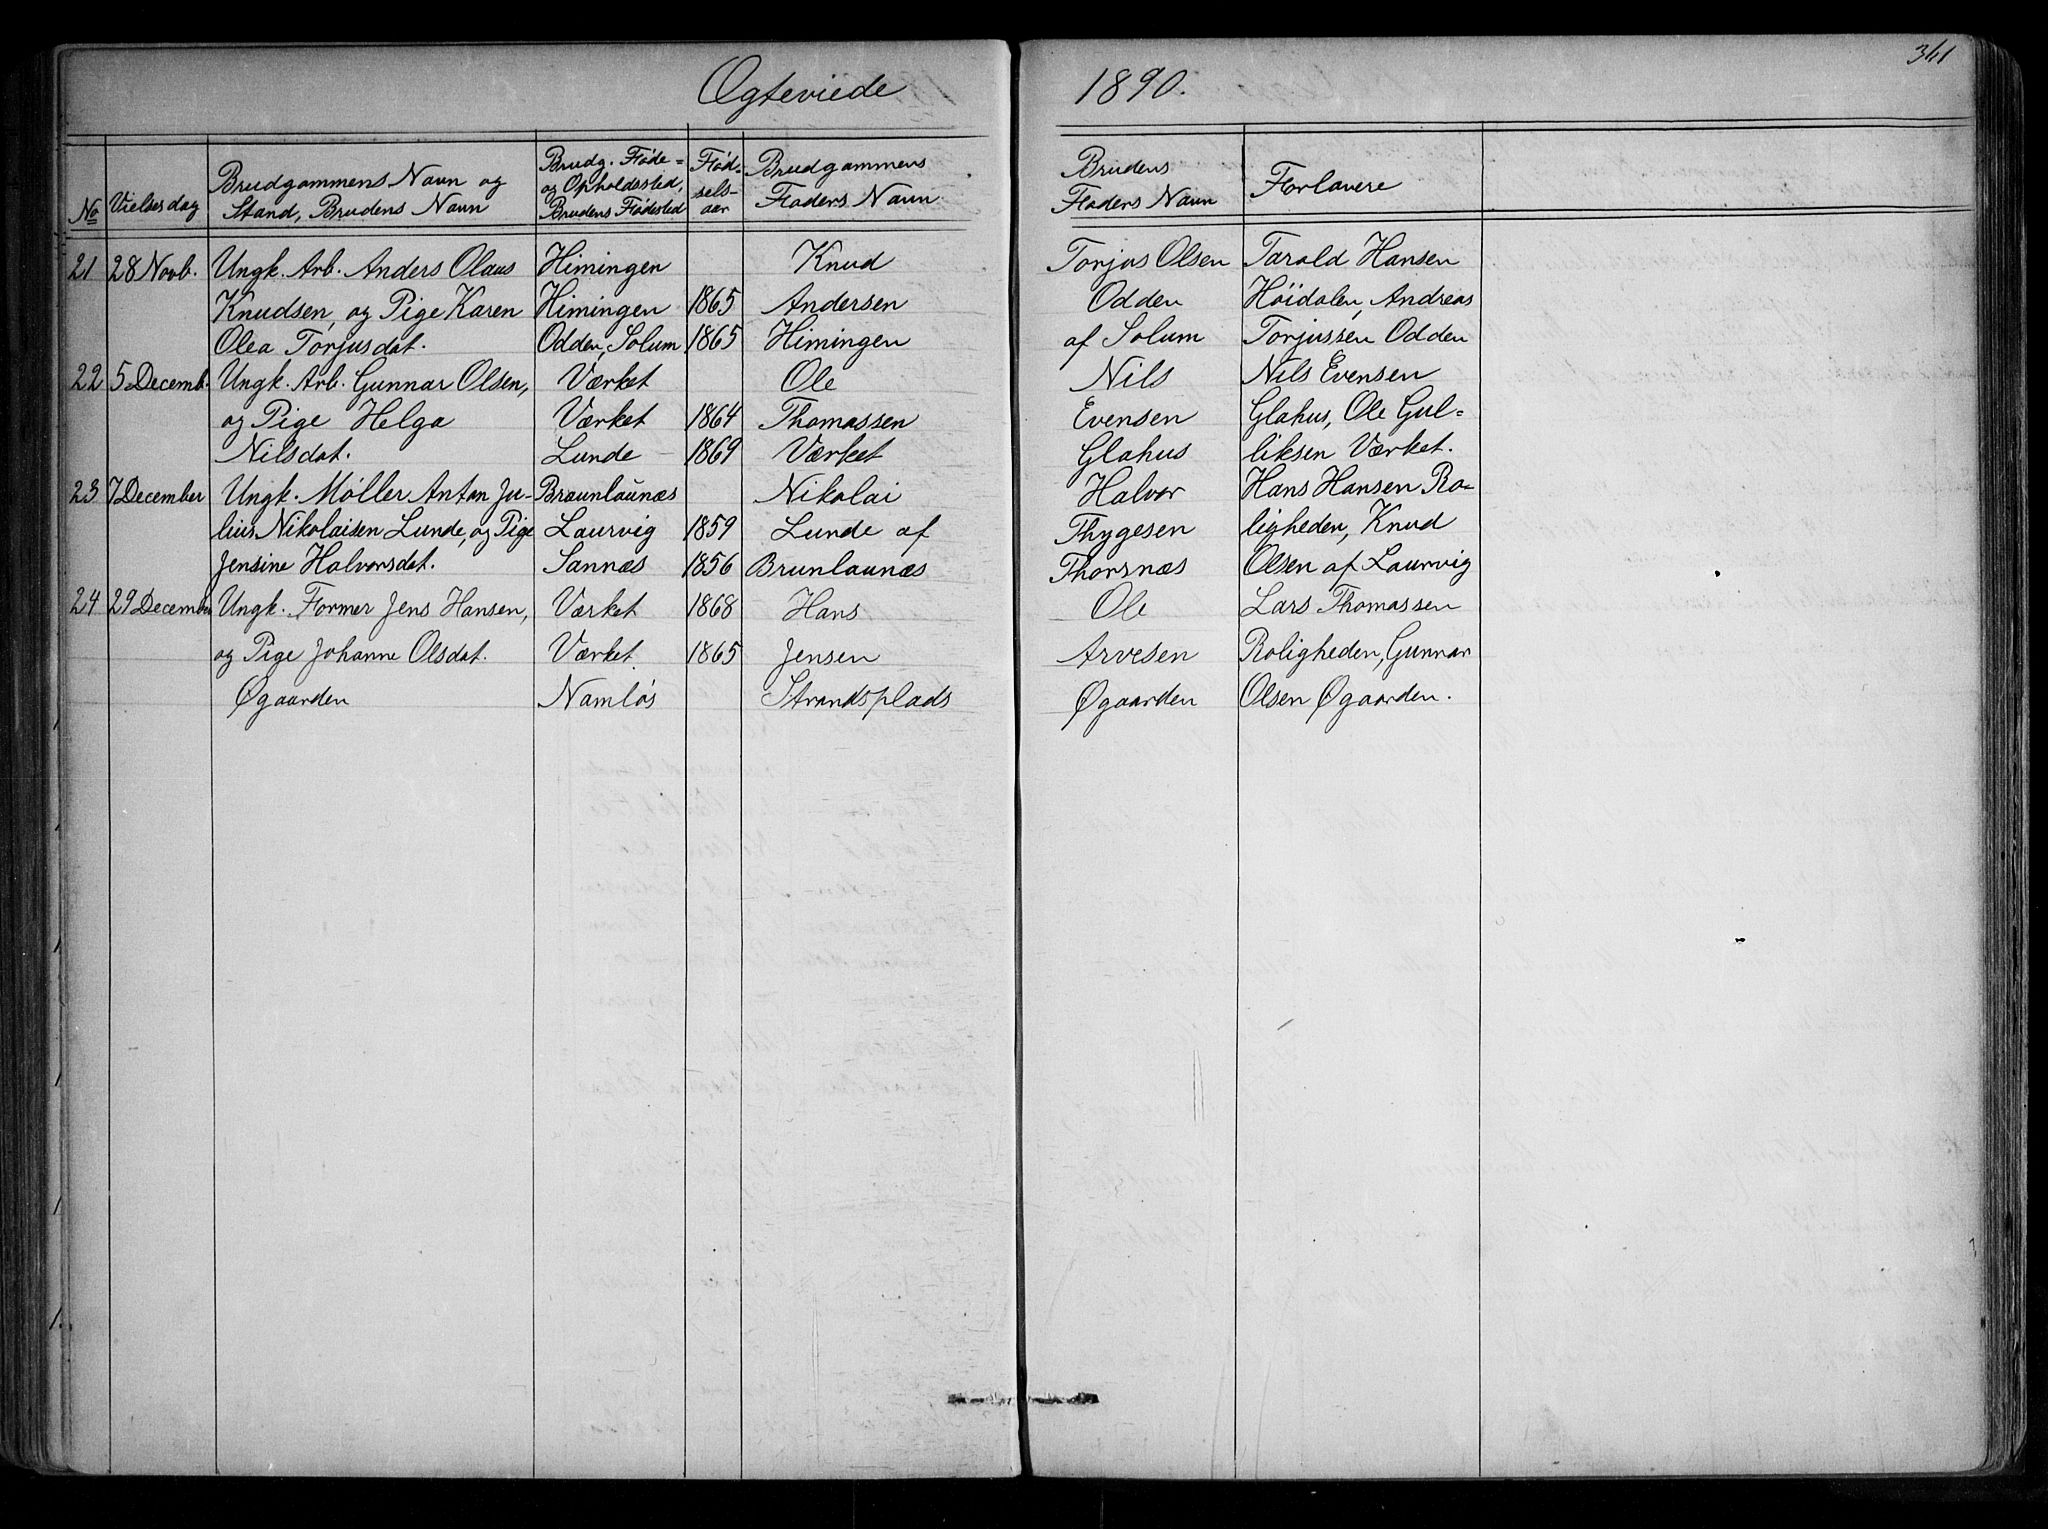 361
Ægteviede 1890.
No
Vielses dag
Brudgommens Navn og
Stand, Brudens Navn
Brudg. Føde-
og Opholdssted,
Brudens Fødested
Fød-
sels-
aar
Brudgommens
Faders Navn
Brudens
Faders Navn
Forlovere
21 28 Novb. Ungk. Arb. Anders Olaus Himingen Knud Torjus Olsen Tarald Hansen
Knudsen, og Pige Karen Himingen 1865 Andersen Odden Høidalen, Andreas
Olea Torjusdat. Odden, Solum 1865 Himingen af Solum Torjussen Odden
22 5 Decemb. Ungk. Arb. Gunnar Olsen, Værket Ole Nils Nils Evensen
og Pige Helga Værket 1864 Thomassen Evensen Glahus, Ole Gul-
Nilsdat. Lunde 1869 Værket Glahus liksen Værket.
23 7 December Ungk. Møller Anton Ju- Braunlaunæs Nikolai Halvor Hans Hansen Ro-
lius Nikolaisen Lunde, og Pige Laurvig 1859 Lunde af Thygesen ligheden, Knud
Jensine Halvorsdat. Sannæs 1856 Brunlaunæs Thorsnæs Olsen af Laurvig
24 29 December Ungk. Former Jens Hansen, Værket 1868 Hans Ole Lars Thomassen
og Pige Johanne Olsdat. Værket 1865 Jensen Arvesen Roligheden, Gunnar
Øgaarden Namløs Strandsplads Øgaarden Olsen Øgaarden.